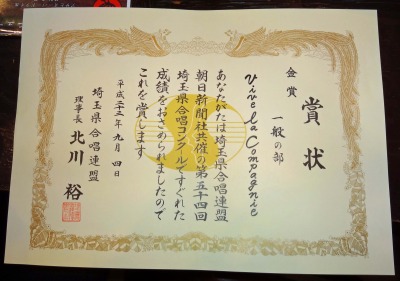 賞状
金賞
一般の部
Vive la Compagnie
あなたがたは埼玉県合唱連盟
朝日新聞社共催の第五十四回
埼玉県合唱コンクールですぐれた
成績をおさめられましたので
これを賞します
平成二十三年九月四日
埼玉県合唱連盟
理事長 北川 裕